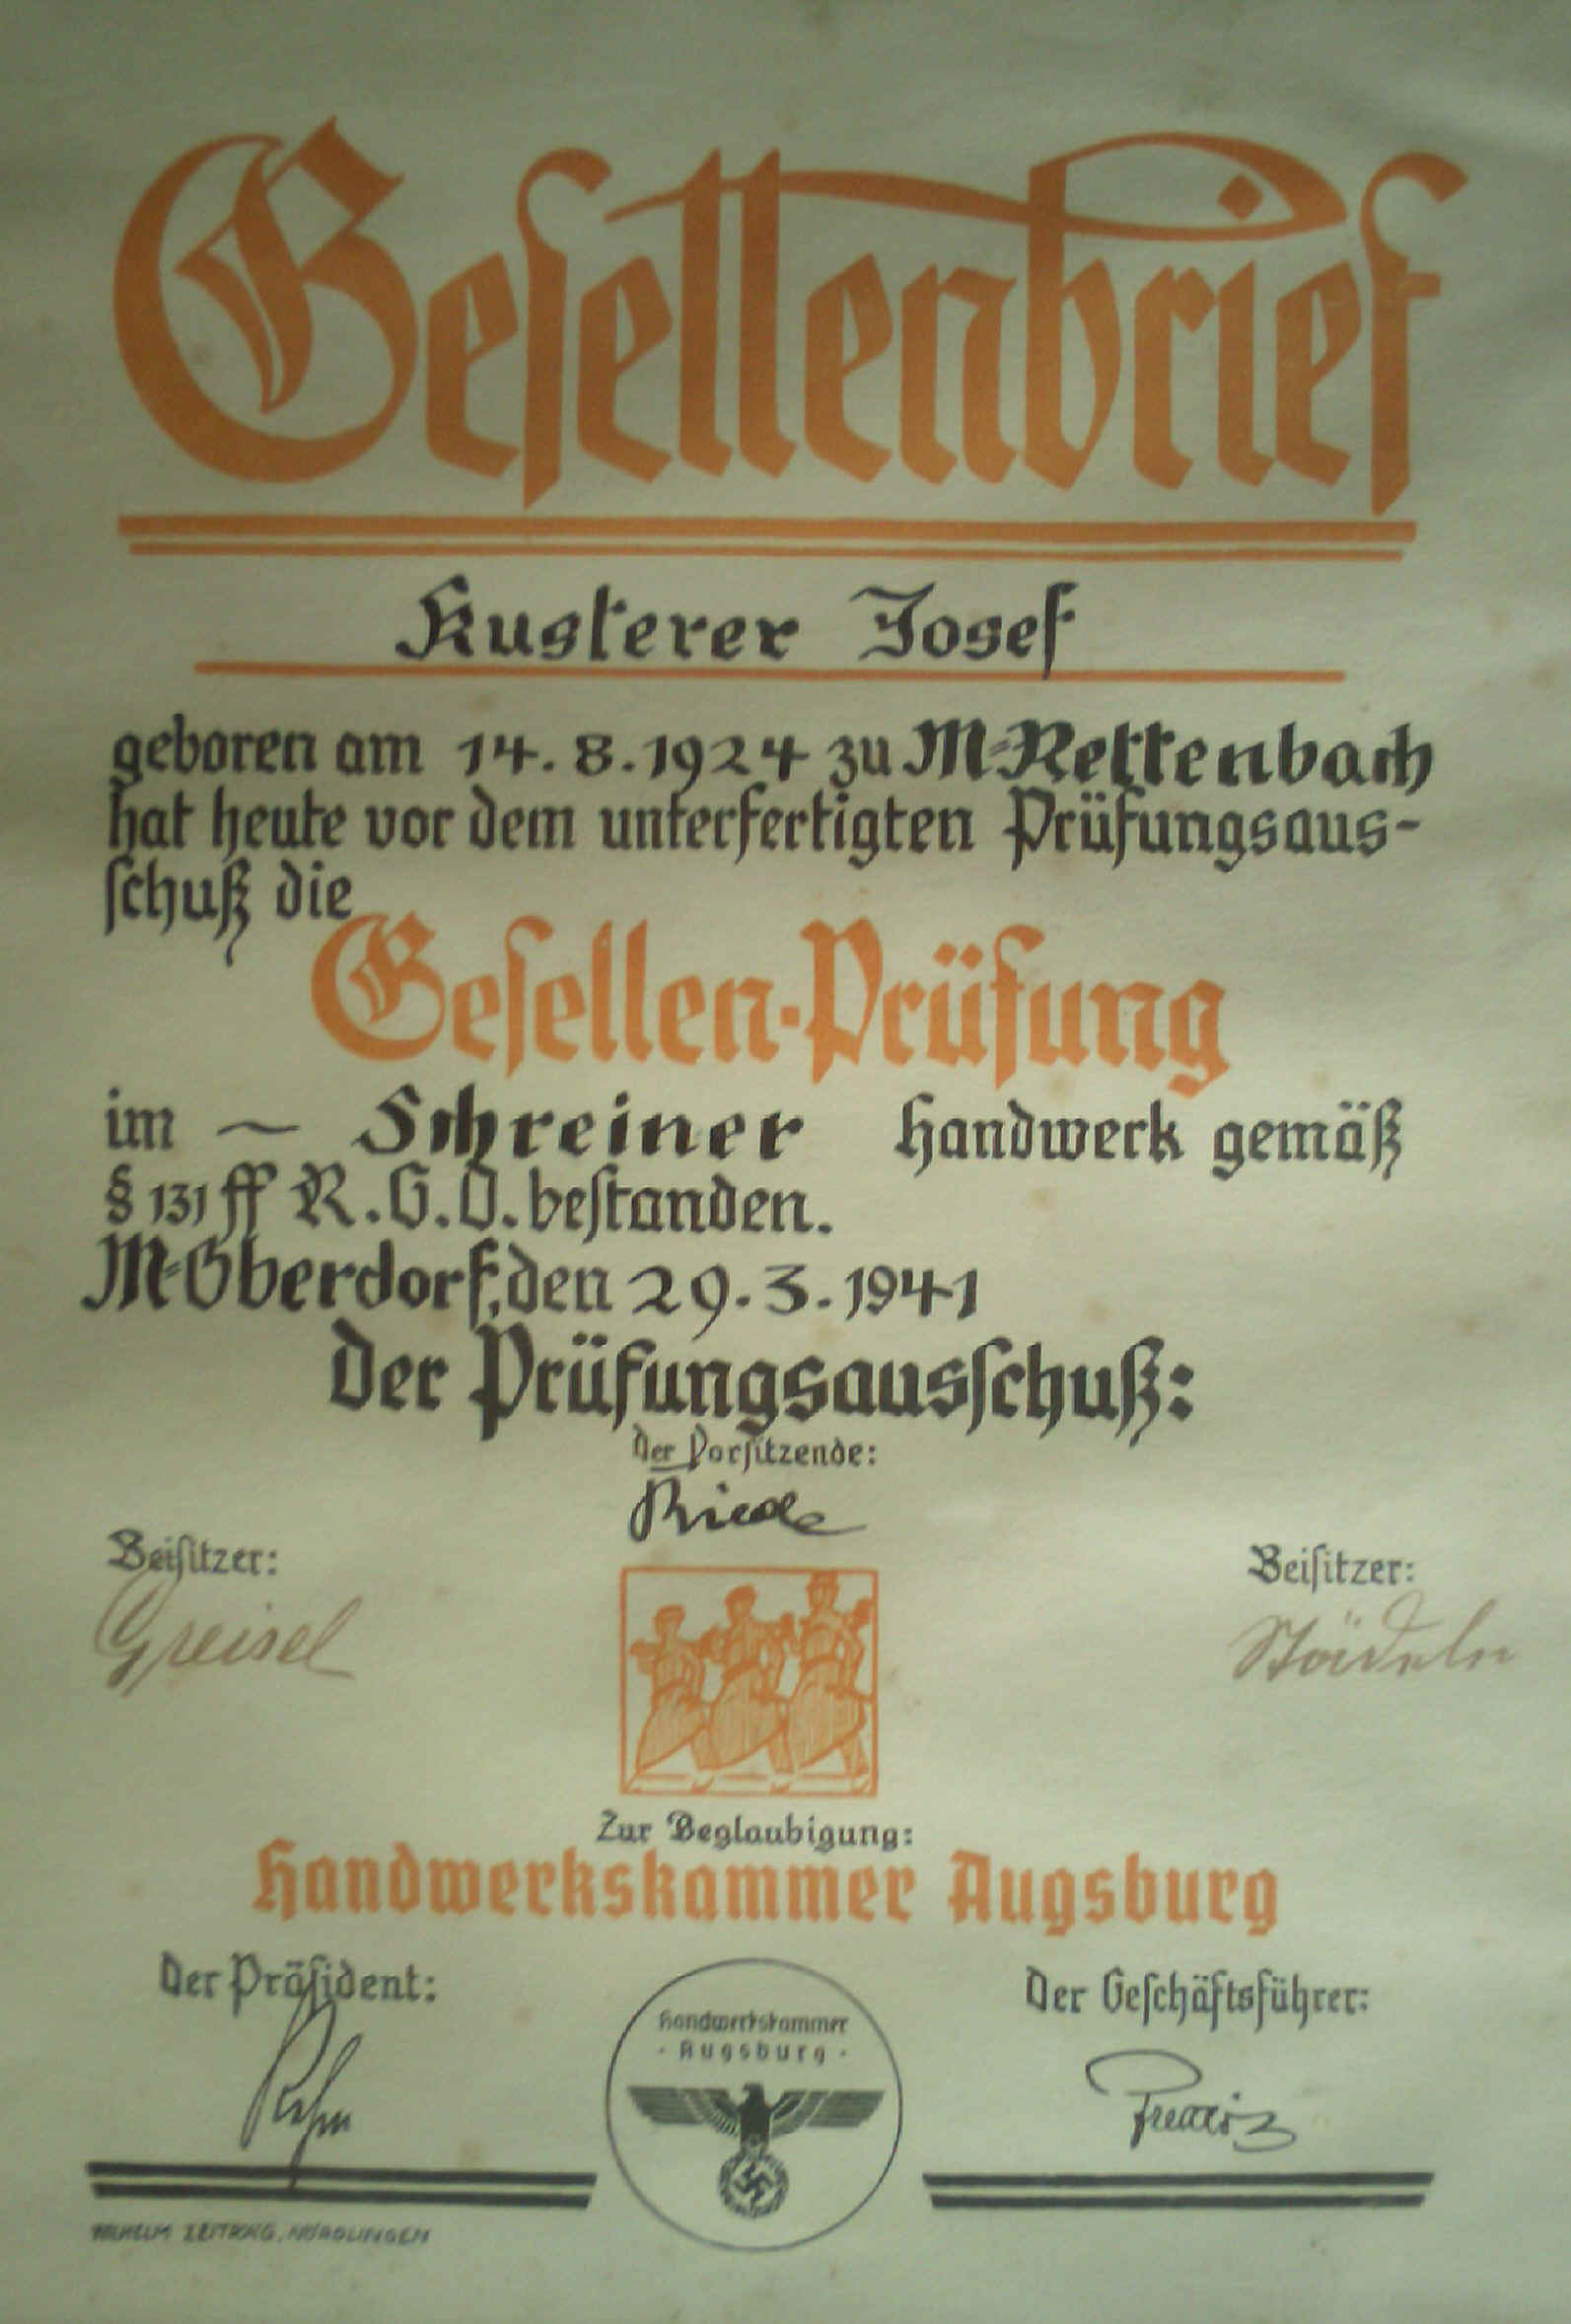 Gesellenbrief
Kusterer Josef
geboren am 14.8.1924 zu M=Rettenbach
hat heute vor dem unterfertigten Prüfungsaus-
schuß die
Gesellen-Prüfung
im ~ Schreiner Handwerk gemäß
§ 131 ff R.G.O. bestanden.
M=Oberdorf, den 29.3.1941
Der Prüfungsausschuß:
Der Vorsitzende:
Beisitzer:
Beisitzer:
Greisel
Zur Beglaubigung:
Handwerkskammer Augsburg
Der Präsident:
Der Geschäftsführer:
Handwerkskammer
· Augsburg ·
WILHELM ZEITRÄG, NÖRDLINGEN